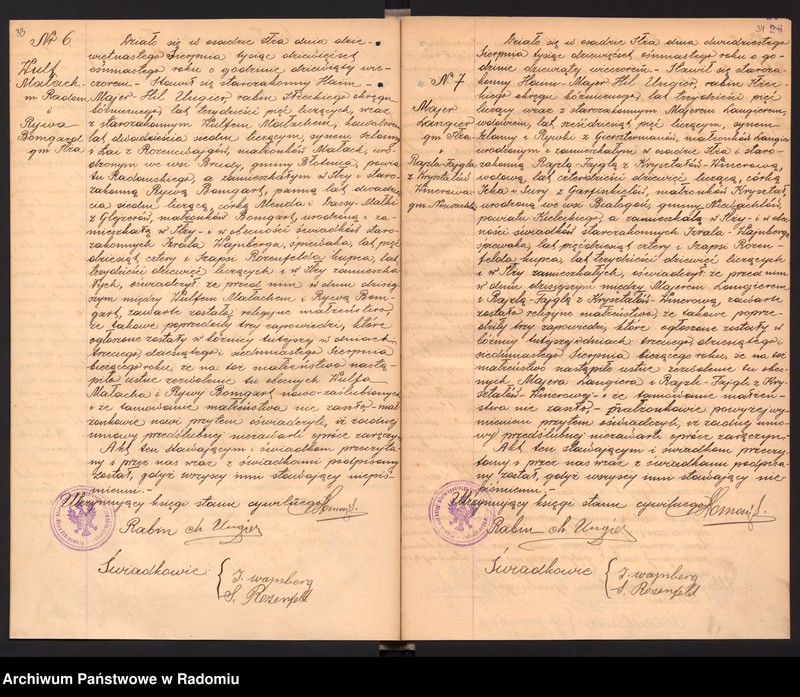 33
Nr 6
Wulf
Małach
m. Radom
i
Rywa
Bomgard
gm Iłża
Działo się w osadzie Iłża dnia dzie-
więtnastego Sierpnia tysiąc dziewięćset
ósmnastego roku o godzinie dziewiątej wie-
czorem. Stawił się starozakonny Hann-
Majer-Hil Ungier, rabin Iłżeckiego okręgu
bóżniczego, lat trzydzieści pięć liczących, wraz
z starozakonnym Wulfem Małachem, kawalerem
lat dwadzieścia siedm liczącym, synem Szlamy
i Łai z Rozencwajgów, małżonków Małach, uro-
dzonym we wsi gminy Błotnica, powia-
tu Radomskiego, a zamieszkałym w Iłży i staro-
zakonną Rywą Bomgart, panną, lat dwadzie-
ścia siedm liczącą, córką Menda i Małki
z małżonków Bomgart, urodzoną i za-
mieszkałą w Iłży - i w obecności świadków staro-
zakonnych Izrala Wajnberga, śpiewaka, lat pięć-
dziesiąt cztery i Szapsi Rozenfelda kupca, lat
trzydzieści dziewięć liczących i w Iłży zamieszka-
łych, oświadczył że przed nim w dniu dzisiej-
szym między Wulfem Małachem i Rywą Bom-
gart, zawarte zostało religijne małżeństwo,
że takowe poprzedziły trzy zapowiedzi, które
ogłoszone zostały w bóżnicy tutejszej w dniach
trzeciego, dziesiątego i siedmnastego Sierpnia
bieżącego roku, że na toż małżeństwo nastą-
piło ustne zezwolenie tu obecnych Wulfa
Małacha i Rywy Bomgart nowo-zaślubionych
i że tamowanie małżeństwa nie zaszło - mał-
żonkowie nowi przytem oświadczyli, iż żadnej
umowy przedślubnej niezawarli oprócz zaręczyn.
Akt ten stawającym i świadkom przeczyta-
ny i przez nas wraz z świadkami podpisany
został, gdyż wszyscy inni stawający niepiś-
mienni.-
Utrzymujący księgi stanu cywilnego
Rabin Ch Ungier
Świadkowie:
I. Wajnberg
S. Rozenfeld
34 28
N. 7
Majer
Langier
gm Iłża
i
Rajzla-Fajgla
z Kryształów
Winerowa
gm. Niewachlów
Działo się w osadzie Iłża dnia dwudziestego
Sierpnia tysiąc dziewięćset ósmnastego roku o go-
dzinie dziewiątej wieczorem. Stawił się staroza-
konny Hann-Majer Hil Ungier, rabin Iłżec-
kiego okręgu bóżniczego, lat trzydzieści pięć
liczący wraz z starozakonnym Majerem Langierem,
wdowcem, lat sześćdziesiąt pięć liczącym, synem
Szlamy i Rywki z małżonków Langier
urodzonym i zamieszkałym w osadzie Iłża i staro-
zakonną Rajzlą-Fajglą z Kryształów-Winerową,
wdową, lat czterdzieści dziewięć liczącą, córką
Icka i Sury z Garfinkielów, małżonków Kryształ,
urodzoną we wsi Białogoń, gminy Niewachlów
powiatu Kieleckiego, a zamieszkałą w Iłży - i w obec-
ności świadków starozakonnych Izrala-Wajnberga,
śpiewaka, lat pięćdziesiąt cztery i Szapsi Rozen-
felda kupca, lat trzydzieści dziewięć liczących
i w Iłży zamieszkałych, oświadczył że przed nim
w dniu dzisiejszym między Majerem Langierem
i Rajzlą-Fajglą z Kryształów-Winerową, zawarte
zostało religijne małżeństwo, że takowe poprze-
dziły trzy zapowiedzi, które ogłoszone zostały w
bóżnicy tutejszej w dniach trzeciego, dziesiątego i
siedmnastego Sierpnia bieżącego roku, że na toż
małżeństwo nastąpiło ustne zezwolenie tu obec-
nych Majera Langiera i Rajzli-Fajgli z Kry-
ształów-Winerowej - i że tamowanie małżeń-
stwa nie zaszło.- Małżonkowie powyżej wy-
mienieni przytem oświadczyli, iż żadnej umo-
wy przedślubnej niezawarli oprócz zaręczyn.
Akt ten stawającym i świadkom przeczy-
tany i przez nas wraz z świadkami podpisa-
ny został, gdyż wszyscy inni stawający nie
piśmienni.-
Utrzymujący księgi stanu cywilnego
Rabin Ch Ungier
Świadkowie
I. Wajnberg
S. Rozenfeld
Archiwum Państwowe w Radomiu